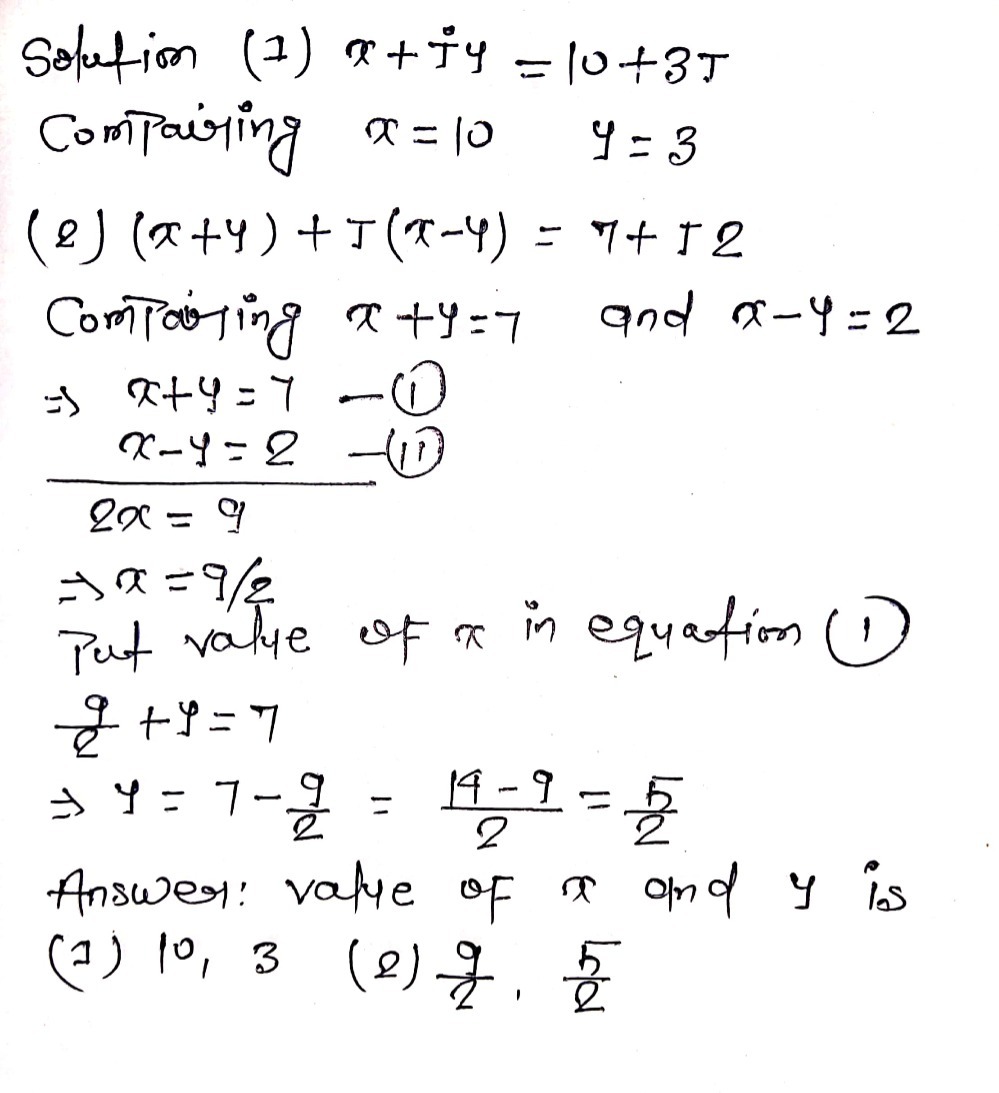 Solution (1) x + jy = 10 + 3J
Compairing x = 10 y = 3
(2) (x + y) + J(x - y) = 7 + J2
Compairing x + y = 7 and x - y = 2
⇒ x + y = 7 — (I)
x - y = 2 — (II)
2x = 9
⇒ x = 9/2
Put value of x in equation (I)
9/2 + y = 7
⇒ y = 7 - 9/2 = (14 - 9)/2 = 5/2
Answer: value of x and y is
(1) 10, 3 (2) 9/2, 5/2